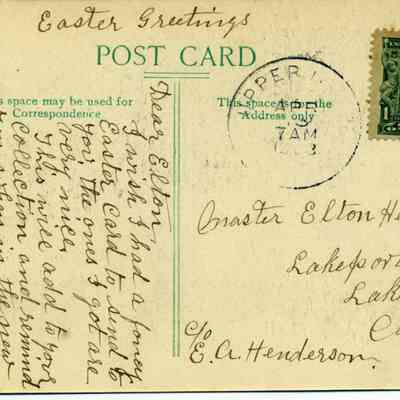 Easter Greetings
POST CARD
s space may be used for
Correspondence
This space is for the
Address only
UPPER L
APR
7AM
Dear Elton,
I wish I had a
Easter Card to send to
you. The ones I got are
very nice.
This will add to your
Collection and remind
in the new
Master Elton He
Lakepor
Lak
C
c/o
E. A. Henderson.
1